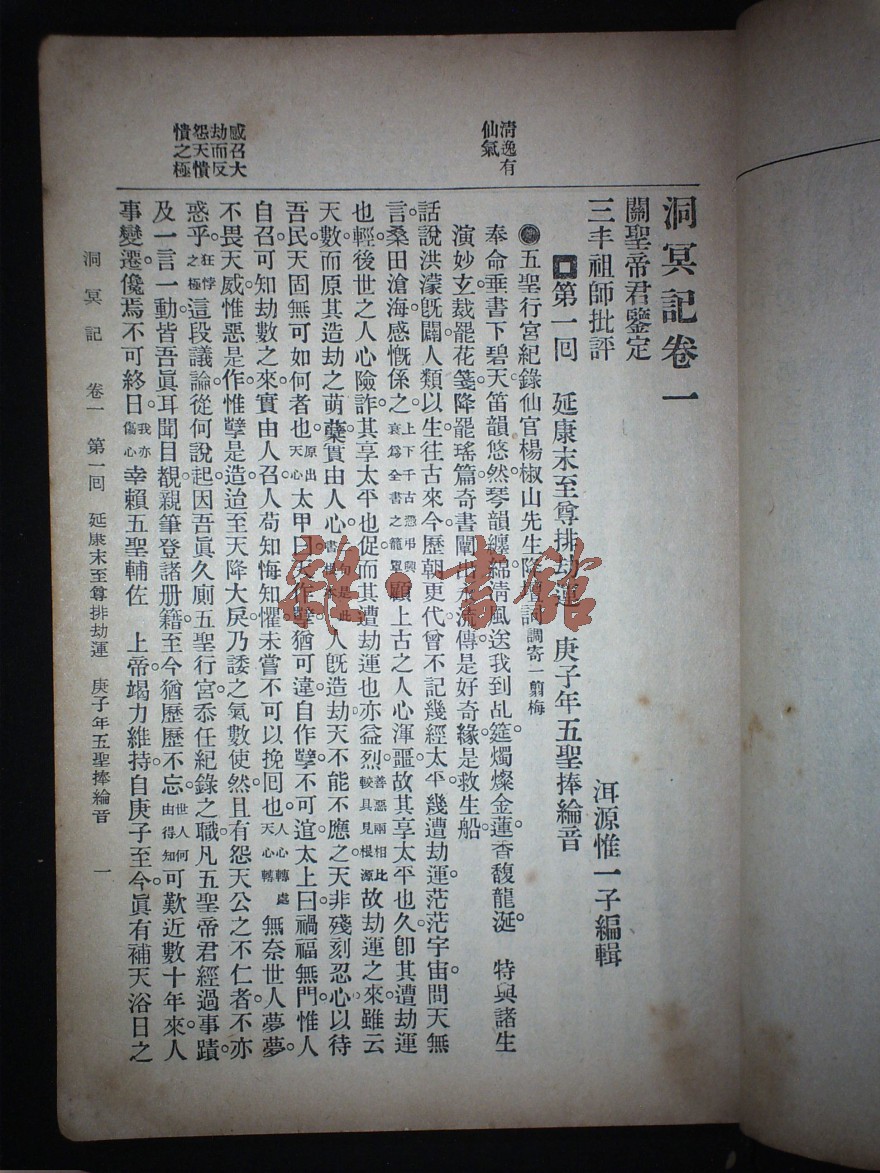 清逸有
仙氣
感召大
劫而反
怨天憒
憒之極
洞冥記卷一
關聖帝君鑒定
三丰祖師批評
洱源惟一子編輯
第一回 延康末至尊排劫運 庚子年五聖捧綸音
五聖行宮紀錄仙官楊椒山先生降壇詞調寄一翦梅
奉命垂書下碧天。笛韻悠然。琴韻纏綿。淸風送我到乩筵。燭燦金蓮。香馥龍涎。 特與諸生
演妙玄。裁罷花箋。降罷瑤篇。奇書闡出永流傳。是好奇緣。是救生船。
話說洪濛旣闢。人類以生。往古來今。歷朝更代。曾不記幾經太平。幾遭劫運。茫茫宇宙。問天無
言。桑田滄海。感慨係之。上下千古憑弔興衰爲全書之籠罩顧上古之人心渾噩。故其享太平也久。卽其遭劫運
也輕。後世之人心險詐。其享太平也促。而其遭劫運也亦益烈。善惡兩相比較具見根源故劫運之來。雖云
天數。而原其造劫之萌蘖。實由人心。人旣造劫。天不能不應之。天非殘刻忍心以待
吾民。天固無可如何者也。原出天心太甲曰。天作孼。猶可違。自作孼。不可逭。太上曰。禍福無門。惟人
自召。可知劫數之來。實由人召。人苟知悔知懼。未嘗不可以挽回也。人心轉處天心轉無奈世人夢夢。
不畏天威。惟惡是作。惟孼是造。迨至天降大戾。乃諉之氣數使然。且有怨天公之不仁者。不亦
惑乎。狂悖之極這段議論。從何說起。因吾眞久厠五聖行宮。忝任紀錄之職。凡五聖帝君經過事蹟。
及一言一動。皆吾眞耳聞目覩。親筆登諸册籍。至今猶歷歷不忘。世人何由得知可歎近數十年來。人
事變遷。儳焉不可終日。我亦傷心幸賴五聖輔佐 上帝。竭力維持。自庚子至今。眞有補天浴日之
洞冥記 卷一 第一回 延康末至尊排劫運 庚子年五聖捧綸音 一
雜·書館